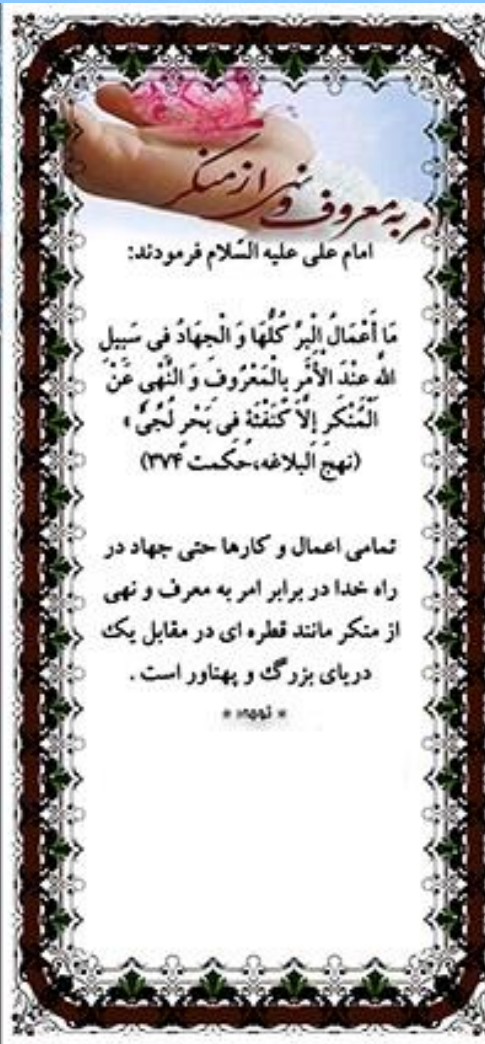 امر به معروف و نهی از منکر
امام علی علیه السّلام فرمودند:
مَا أَعْمَالُ الْبِرِّ كُلُّهَا وَ الْجِهَادُ فِي سَبِيلِ
اللهِ عِنْدَ الْأَمْرِ بِالْمَعْرُوفِ وَ النَّهْيِ عَنْ
الْمُنْكَرِ إِلَّا كَنَفْثَةٍ فِي بَحْرٍ لُجِّيٍّ »
(نهج البلاغه،حکمت ۳۷۴)
تمامی اعمال و کارها حتی جهاد در
راه خدا در برابر امر به معرف و نهی
از منکر مانند قطره ای در مقابل یک
دریای بزرگ و پهناور است .